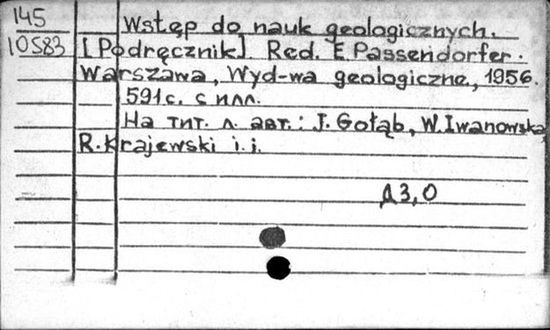 145
10583
Wstęp do nauk geologicznych.
[Podręcznik]. Red. E. Passendorfer.
Warszawa, Wyd-wa geologiczne, 1956.
591 с. с илл.
На тит. л. авт.: J. Gołąb, W. Iwanowska,
R. Krajewski i. j.
Д3,0